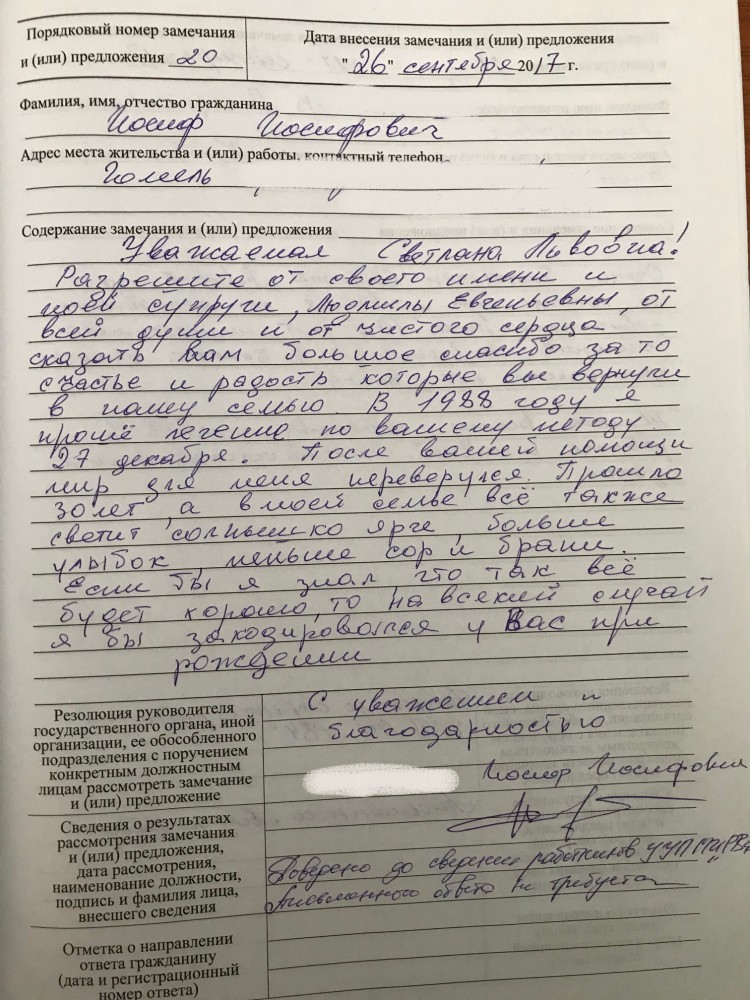 Порядковый номер замечания
и (или) предложения 20
Дата внесения замечания и (или) предложения
"26" сентября 2017 г.
Фамилия, имя, отчество гражданина
Иосиф Иосифович
Адрес места жительства и (или) работы, контактный телефон
Гомель
Содержание замечания и (или) предложения
Уважаемая Светлана Львовна!
Разрешите от своего имени и
моей супруги, Людмилы Евгеньевны, от
всей души и от чистого сердца
сказать вам большое спасибо за то
счастье и радость которые вы вернули
в нашу семью. В 1988 году я
прошё лечение по вашему методу
27 декабря. После вашей помощи
мир для меня перевернулся. Прошло
30 лет, а в моей семье всё также
светит солнышко ярче, больше
улыбок, меньше сор и брани.
Если бы я знал, что так всё
будет хорошо, то на всекий случай
я бы закодировался у Вас при
рождении
Резолюция руководителя
государственного органа, иной
организации, ее обособленного
подразделения с поручением
конкретным должностным
лицам рассмотреть замечание
и (или) предложение
С уважением и
благодарностью
Иосиф Иосифович
Сведения о результатах
рассмотрения замечания
и (или) предложения,
дата рассмотрения,
наименование должности,
подпись и фамилия лица,
внесшего сведения
Доведено до сведения работников
Письменного ответа не требуется
Отметка о направлении
ответа гражданину
(дата и регистрационный
номер ответа)